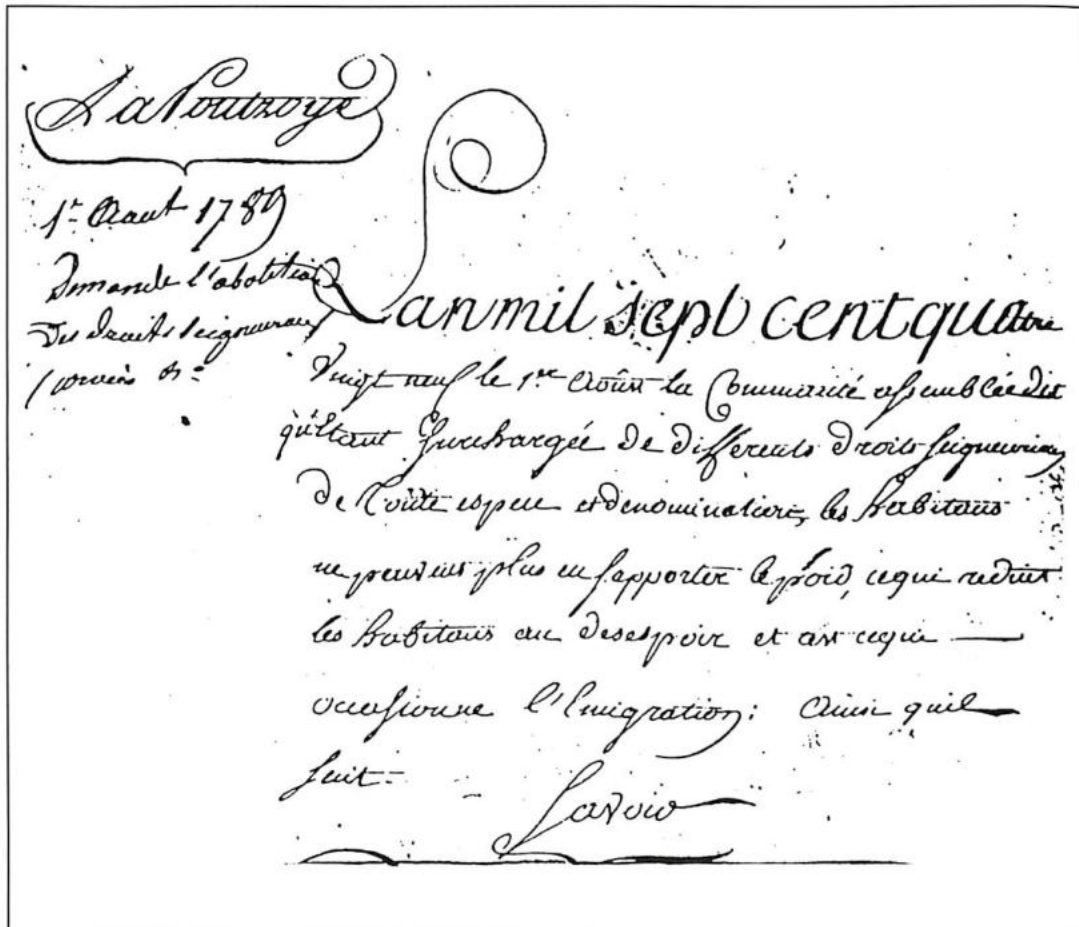 La Poutroye
1er Aout 1789
Demande l'abolition
des droits seigneuraux
corvées &c
L'an mil sept cent quattre
Vingt neuf le 1er Aoûst la Communauté assemblée dit
qu'étant surchargée de differents droits seigneuriaux
de toute espece et denomination, les habitans
ne peuvent plus en supporter le poid, cequi reduit
les habitans au desespoir et est cequi
occasionne l'Emigration: Ainsi quil
suit
Savoir